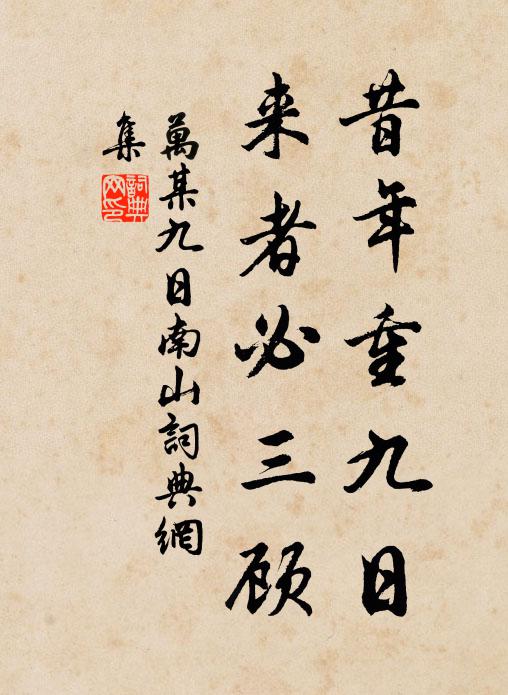 昔年重九日
来者必三顾
萬某九日南山詞典網
集
詞典
网印